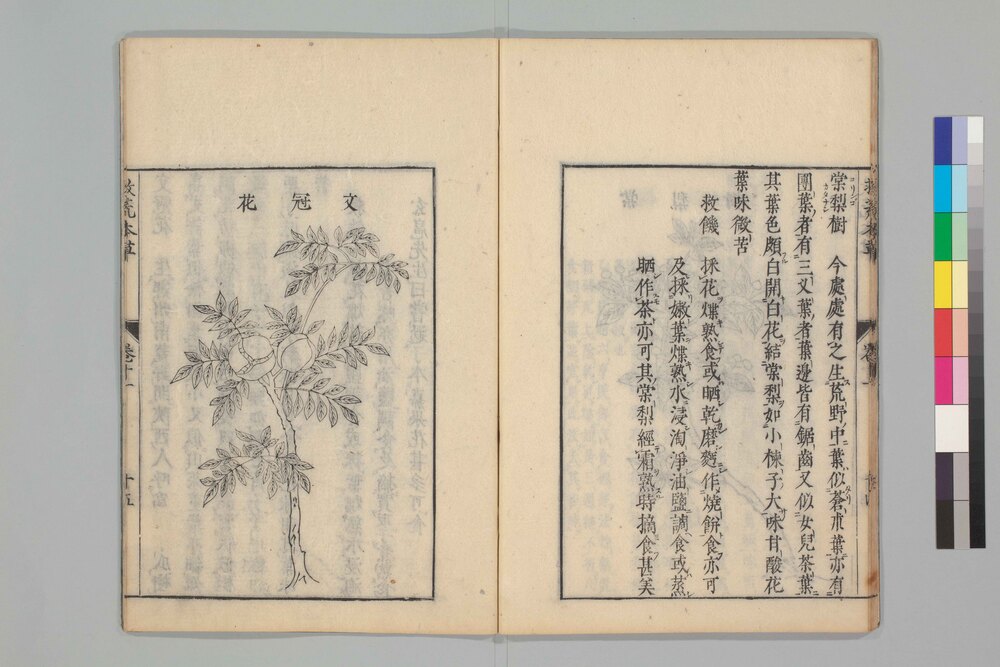 棠梨樹 今處處有之生荒野中葉似蒼朮葉亦有
團葉者有三叉葉者葉邊皆有鋸齒又似女兒茶葉
其葉色頗白開白花結棠梨如小楝子大味甘酸花
葉味微苦
救饑 採花煠熟食或晒乾磨麵作燒餅食亦可
及採嫩葉煠熟水浸淘淨油鹽調食或蒸
晒作茶亦可其棠梨經霜熟時摘食甚美
文冠花
救荒本草 卷十一 十五